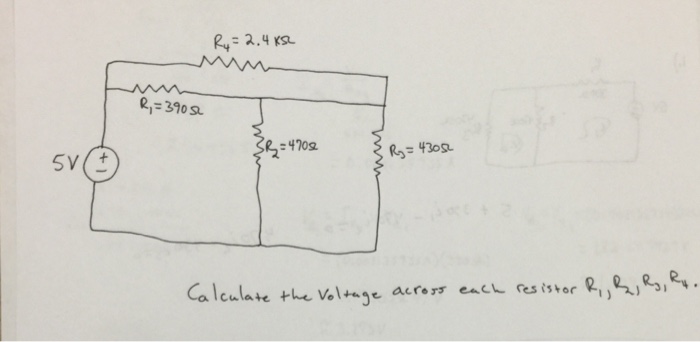 R₄ = 2.4 KΩ
R₁ = 390 Ω
R₂ = 470Ω
R₃ = 430Ω
5V
+
-
Calculate the Voltage across each resistor R₁, R₂, R₃, R₄.